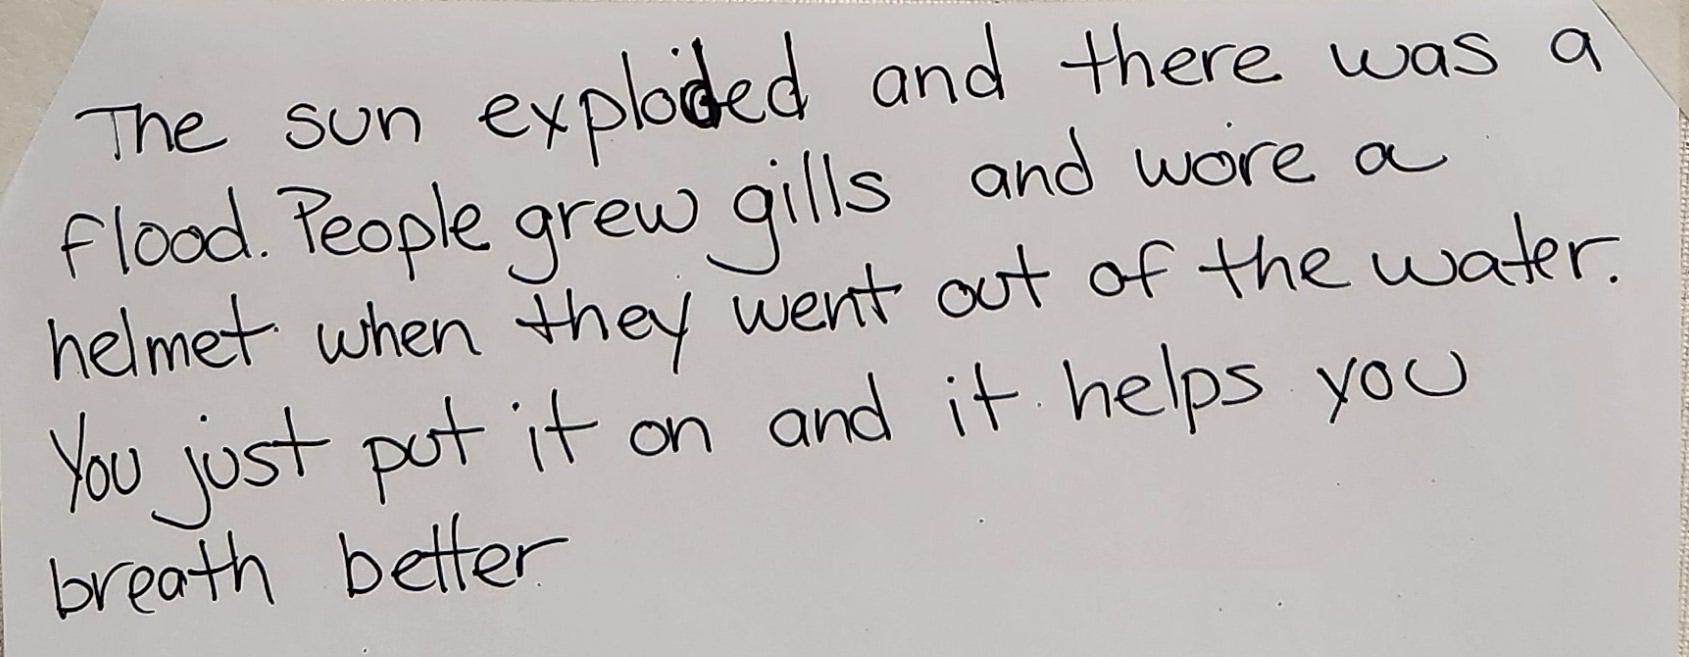 The sun exploded and there was a
flood. People grew gills and wore a
helmet when they went out of the water.
You just put it on and it helps you
breath better.